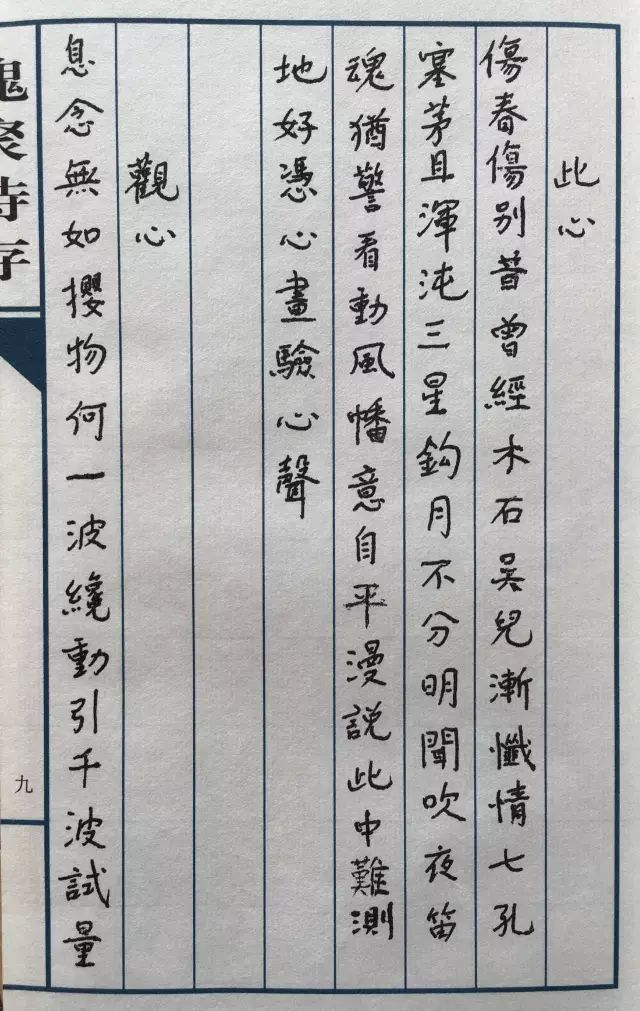 此心
傷春傷別昔曾經木石吳兒漸懺情七孔
塞茅且渾沌三星鈎月不分明聞吹夜笛
魂猶警看動風幡意自平漫說此中難測
地好憑心畫驗心聲
觀心
息念無如攖物何一波纔動引千波試量
詩存
九